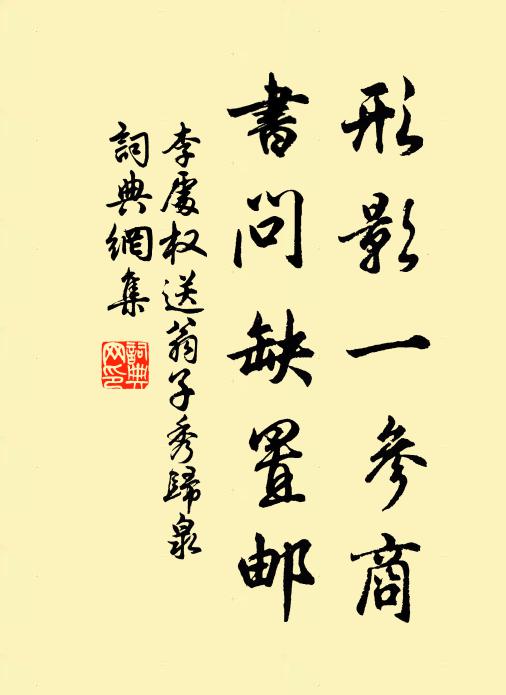 形影一參商
書問缺置邮
李處权送翁子秀歸泉
詞典網集
詞典网印